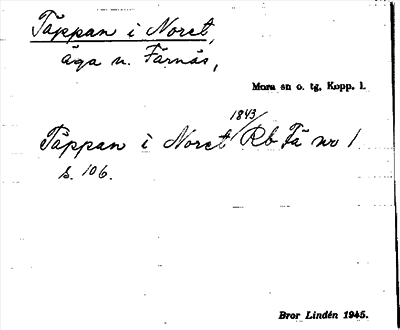 Täppan i Noret,
äga n. Färnäs,
Mora sn o. tg, Kopp. l.
Täppan i Noret 1843/ Rb Fä nr 1
s. 106.
Bror Lindén 1945.